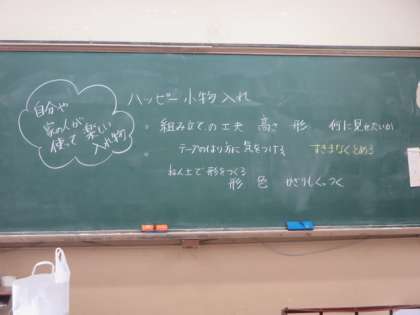 自分や
家の人が
使って楽しい
入れ物
ハッピー小物入れ
。組み立ての工夫 高さ 形 何に見せたいか
。テープのはり方に気をつける すきまなくとめる
ねん土で形をつくる
形 色 かざり